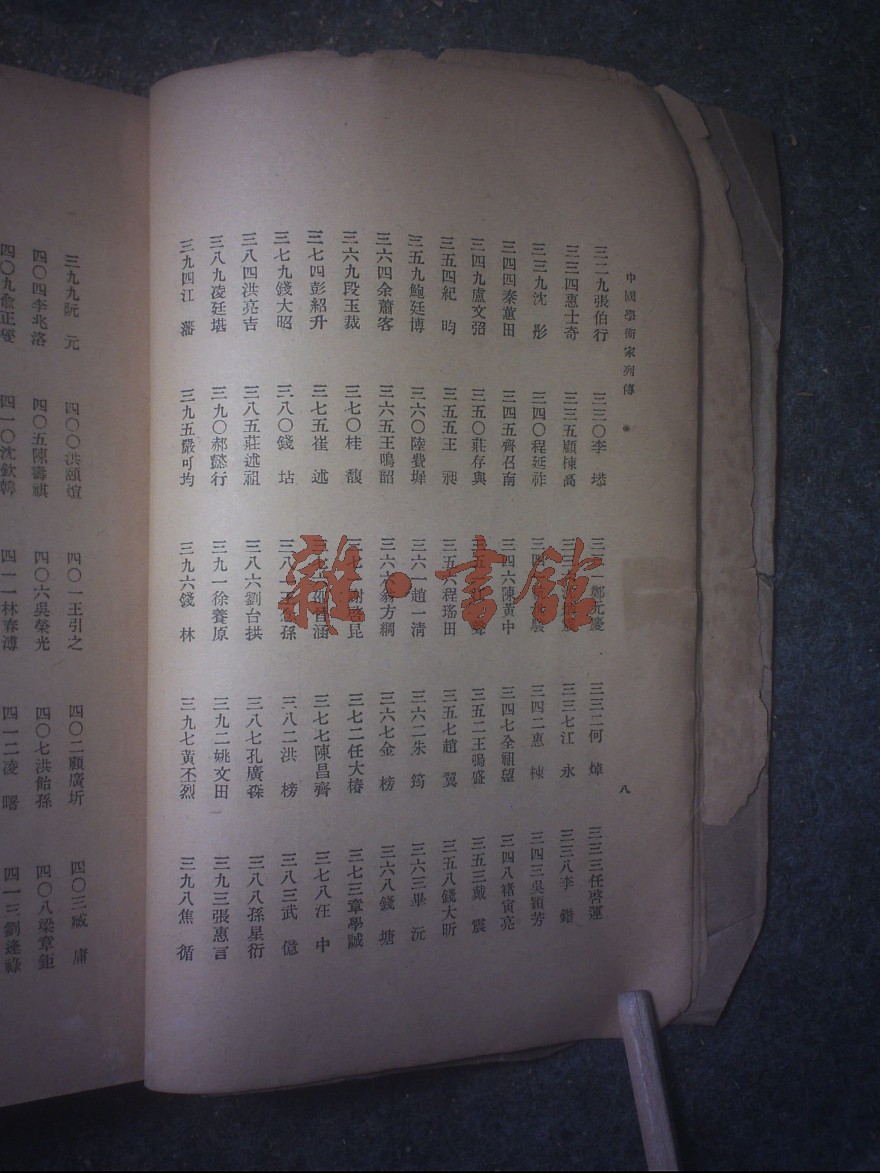 中國學術家列傳 八
三二九張伯行 三三〇李塨 三三一鄭元慶 三三二何焯 三三三任啓運
三三四惠士奇 三三五顧棟高 三三七江永 三三八李鍇
三三九沈彤 三四〇程廷祚 駿 三四二惠棟 三四三吳穎芳
三四四秦蕙田 三四五齊召南 三四六陳黃中 三四七全祖望 三四八褚寅亮
三四九盧文弨 三五〇莊存與 三五二王鳴盛 三五三戴震
三五四紀昀 三五五王昶 三五六程瑤田 三五七趙翼 三五八錢大昕
三五九鮑廷博 三六〇陸費墀 三六一趙一清 三六二朱筠 三六三畢沅
三六四余蕭客 三六五王鳴韶 三六六翁方綱 三六七金榜 三六八錢塘
三六九段玉裁 三七〇桂馥 三七一謝啓昆 三七二任大椿 三七三章學誠
三七四彭紹升 三七五崔述 涵 三七七陳昌齊 三七八汪中
三七九錢大昭 三八〇錢坫 三八一王念孫 三八二洪榜 三八三武億
三八四洪亮吉 三八五莊述祖 三八六劉台拱 三八七孔廣森 三八八孫星衍
三八九凌廷堪 三九〇郝懿行 三九一徐養原 三九二姚文田 三九三張惠言
三九四江藩 三九五嚴可均 三九六錢林 三九七黃丕烈 三九八焦循
三九九阮元 四〇〇洪頤煊 四〇一王引之 四〇二顧廣圻 四〇三臧庸
四〇四李兆洛 四〇五陳壽祺 四〇六吳榮光 四〇七洪飴孫 四〇八梁章鉅
四〇九俞正燮 四一〇沈欽韓 四一一林春溥 四一二凌曙 四一三劉逢祿
雜·書館